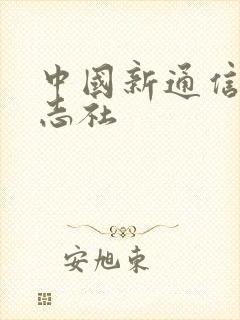 中國新通信
志社
安旭東